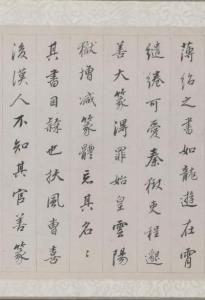 薄紹之書如龍遊在霄
繾綣可愛秦獄吏程邈
善大篆得罪始皇雲陽
獄增减篆體去其名〻
其書曰隸也扶風曹喜
後漢人不知其官善篆